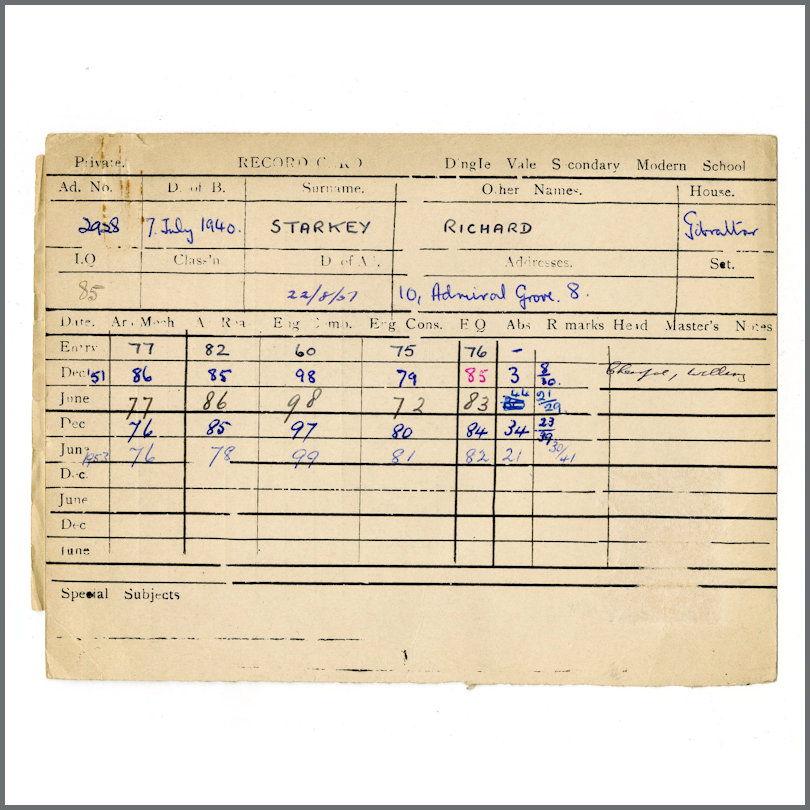 Private. RECORD CARD Dingle Vale Secondary Modern School
Ad. No. D. of B. Surname. Other Names. House.
2928 7 July 1940. STARKEY RICHARD Gibraltar
I.Q Class'n D of Ad. Addresses. Set.
85 22/8/51 10, Admiral Grove. 8.
Date. Ar. Mech Ar Rea. Eng Comp. Eng Cons. E Q Abs Remarks Head Master's Notes
Entry 77 82 60 75 76 -
Dec '51 86 85 98 79 85 3 8/30. Cheerful, willing
June 77 86 98 72 83 44 21/29.
Dec 76 85 97 80 84 34 23/39
June 1953 76 78 99 81 82 21 30/41
Dec.
June
Dec
June
Special Subjects